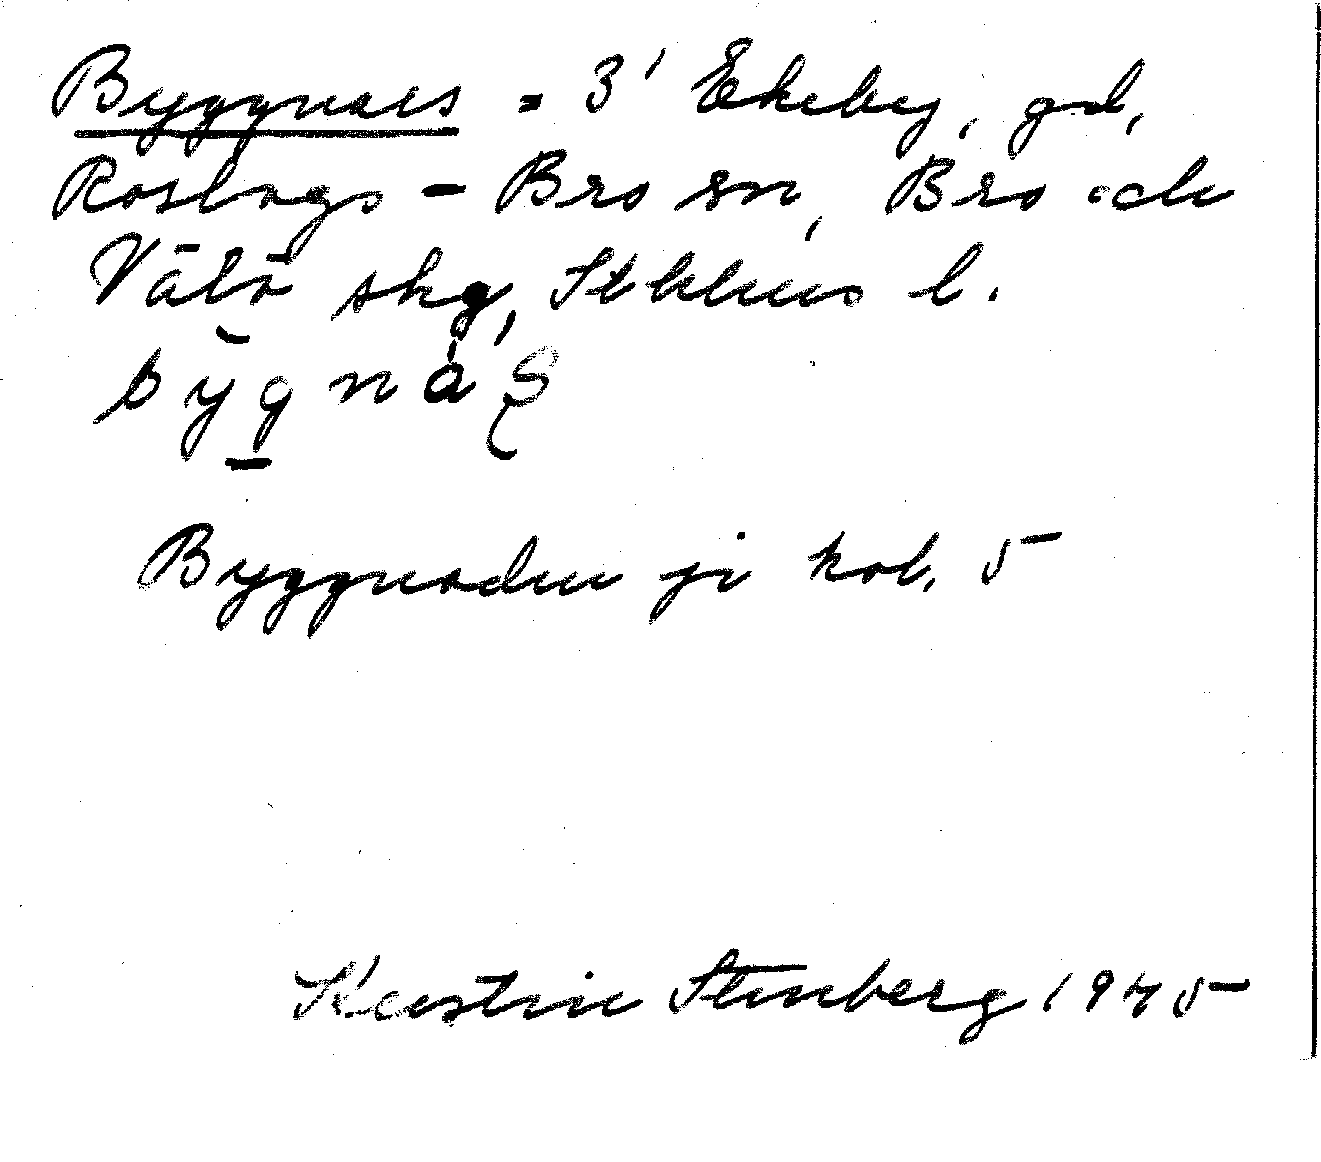 Byggnaes = 3' Ekeby, gd,
Roslags - Bro sn, Bro och
Vätö skg, Stkhlms l.
bygnás
Byggnaden ji kol. 5
Kerstin Stenberg 1945